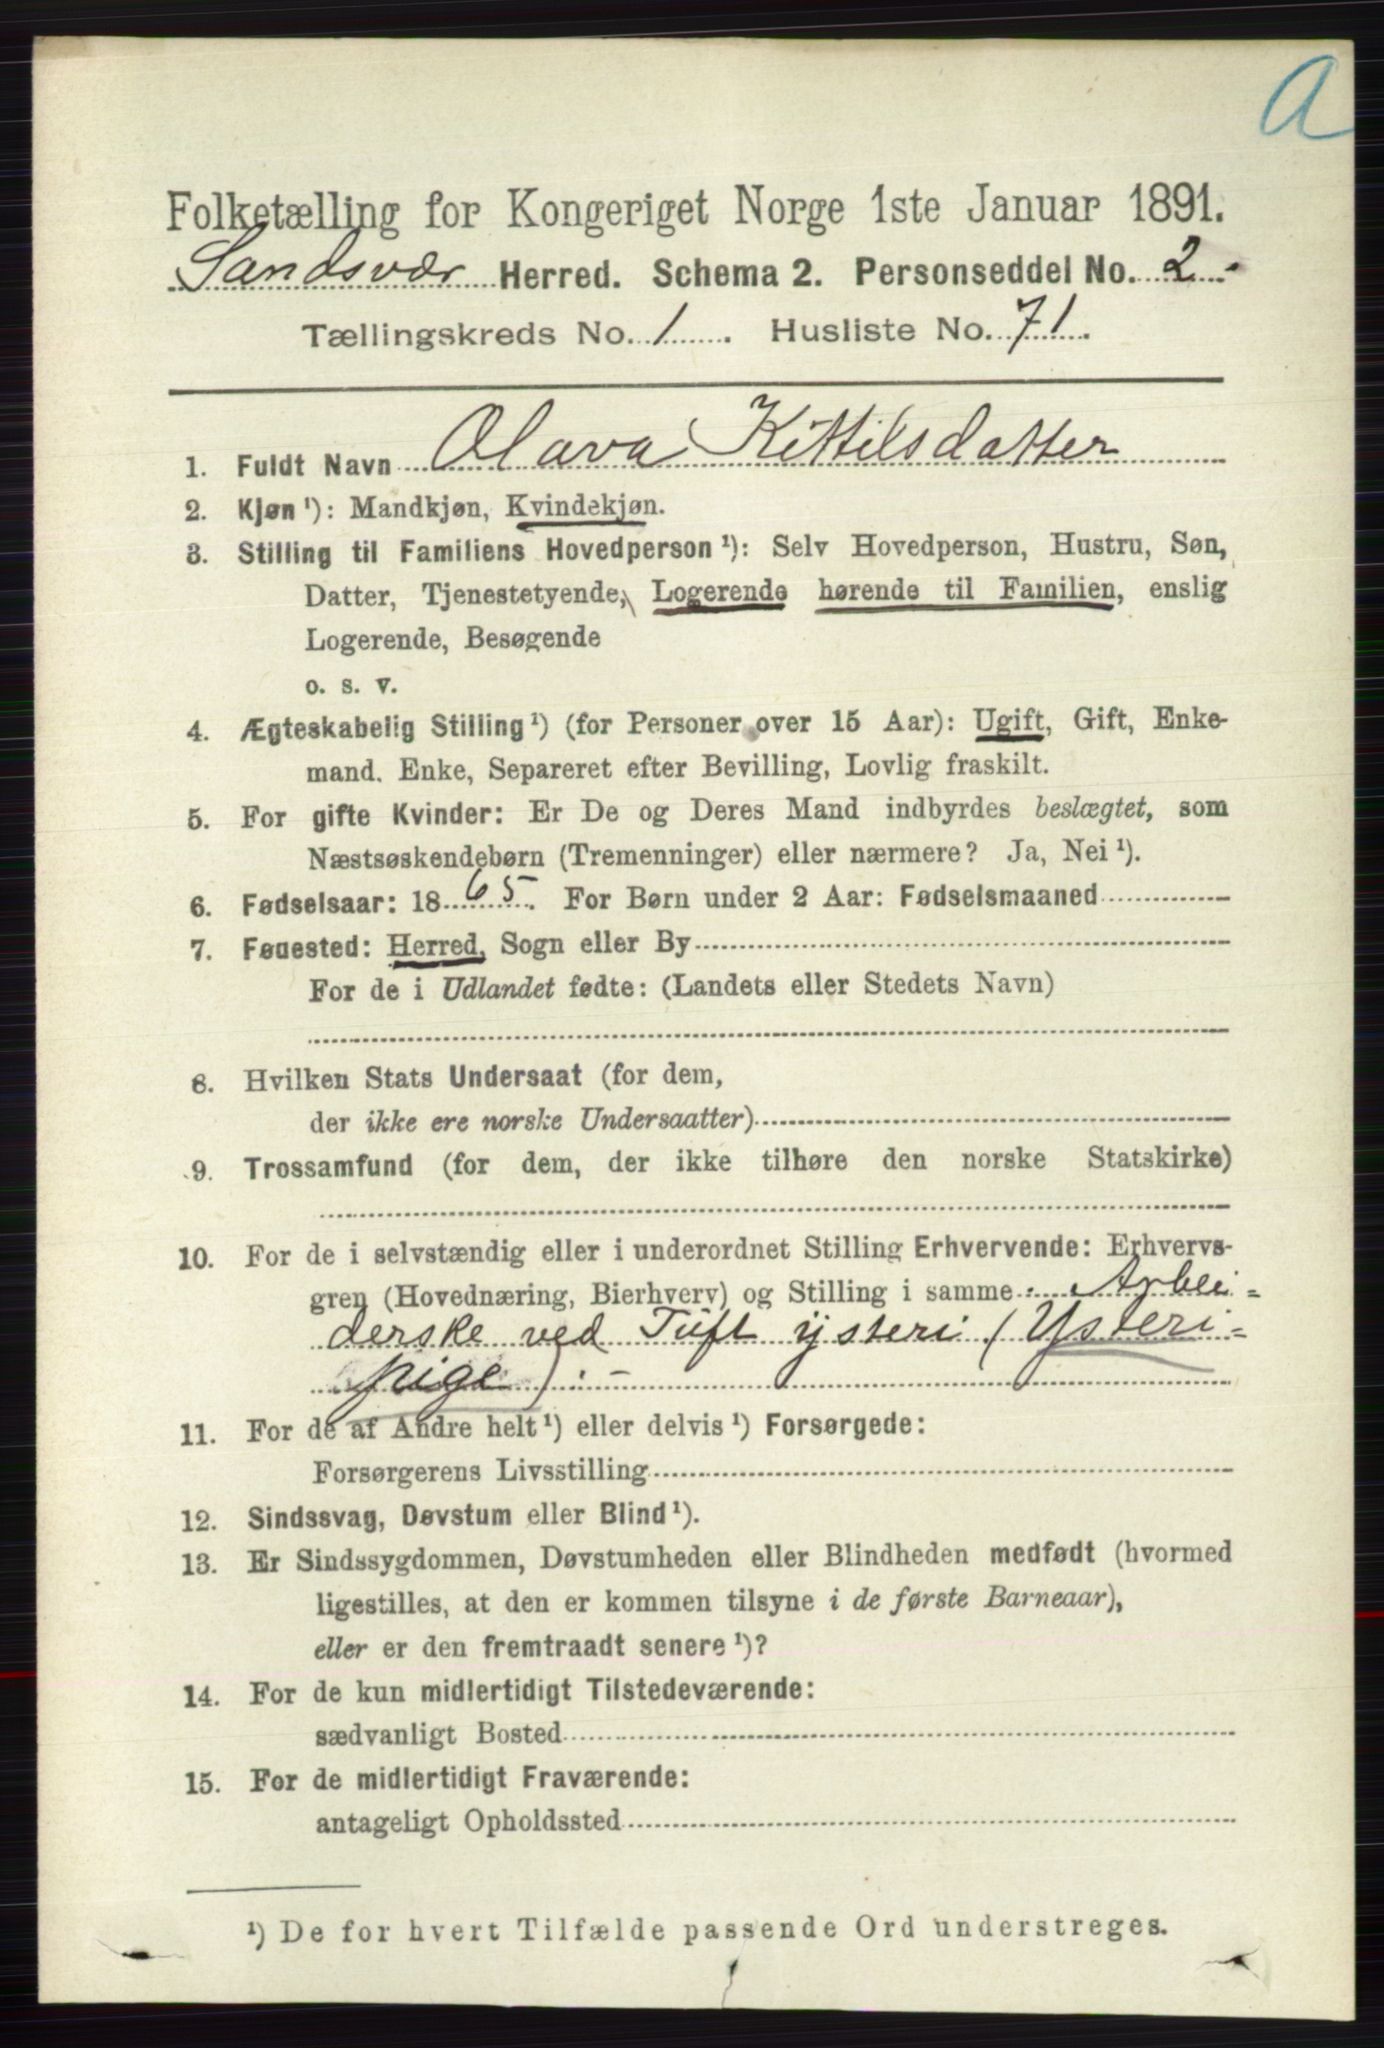 A
Folketælling for Kongeriget Norge 1ste Januar 1891.
Sandsvær Herred. Schema 2. Personseddel No. 2.
Tællingskreds No. 1. Husliste No. 71.
1. Fuldt Navn Olava Kittilsdatter
2. Kjøn¹): Mandkjøn, Kvindekjøn.
3. Stilling til Familiens Hovedperson¹): Selv Hovedperson, Hustru, Søn,
Datter, Tjenestetyende, Logerende hørende til Familien, enslig
Logerende, Besøgende
o. s. v.
4. Ægteskabelig Stilling¹) (for Personer over 15 Aar): Ugift, Gift, Enke-
mand. Enke, Separeret efter Bevilling, Lovlig fraskilt.
5. For gifte Kvinder: Er De og Deres Mand indbyrdes beslægtet, som
Næstsøskendebørn (Tremenninger) eller nærmere? Ja, Nei¹).
6. Fødselsaar: 1865. For Børn under 2 Aar: Fødselsmaaned
7. Føuested: Herred, Sogn eller By
For de i Udlandet fødte: (Landets eller Stedets Navn)
8. Hvilken Stats Undersaat (for dem,
der ikke ere norske Undersaatter)
9. Trossamfund (for dem, der ikke tilhøre den norske Statskirke)
10. For de i selvstændig eller i underordnet Stilling Erhvervende: Erhvervs-
gren (Hovednæring, Bierhverv) og Stilling i samme Arbei-
derske ved Tuft ysteri (Ysteri-
pige).-
11. For de af Andre helt¹) eller delvis¹) Forsørgede:
Forsørgerens Livsstilling
12. Sindssvag, Døvstum eller Blind¹).
13. Er Sindssygdommen, Døvstumheden eller Blindheden medfødt (hvormed
ligestilles, at den er kommen tilsyne i de første Barneaar),
eller er den fremtraadt senere¹)?
14. For de kun midlertidigt Tilstedeværende:
sædvanligt Bosted
15. For de midlertidigt Fraværende:
antageligt Opholdssted
¹) De for hvert Tilfælde passende Ord understreges.